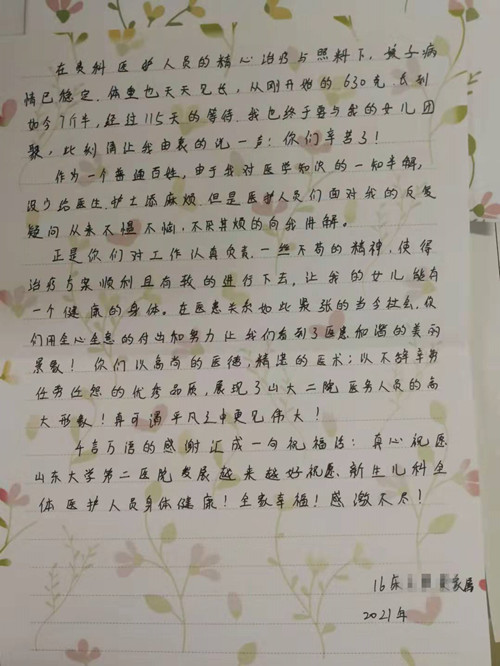 在贵科医护人员的精心治疗与照料下,孩子病
情已稳定.体重也天天见长,从刚开始的630克.长到
如今7斤半,经过115天的等待.我也终于要与我的女儿团
聚,此刻请让我由衷的说一声:你们辛苦了!
作为一个普通百姓,由于我对医学知识的一知半解,
没少给医生.护士添麻烦.但是医护人员们面对我的反复
疑问从来不愠不恼,不厌其烦的向我讲解。
正是你们对工作认真负责.一丝不苟的精神,使得
治疗方案顺利且有效的进行下去,让我的女儿能有
一个健康的身体。在医患关系如此紧张的当今社会,你
们用全心全意的付出和努力让我们看到了医患和谐的美丽
景象!你们以高尚的医德,精湛的医术;以不辞辛劳
任劳任怨的优秀品质,展现了山大二院医务人员的高
大形象!真可谓平凡之中更见伟大!
千言万语的感谢汇成一句祝福语:真心祝愿
山东大学第二医院发展越来越好祝愿、新生儿科全
体医护人员身体健康!全家幸福!感激不尽!
16床 家属
2021年